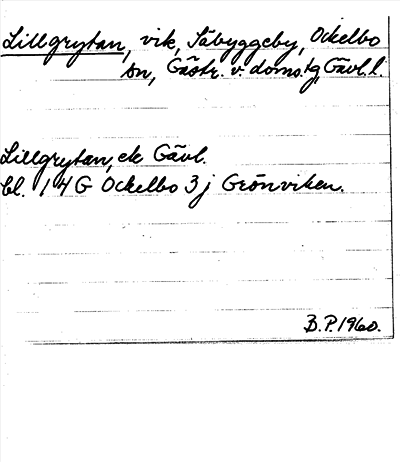 Lillgrytan, vik, Säbyggeby, Ockelbo
sn, Gästr. v. doms.tg, Gävl. l.
Lillgrytan, ek Gävl.
bl. 14 G Ockelbo 3 j Grönviken.
B.P. 1960.